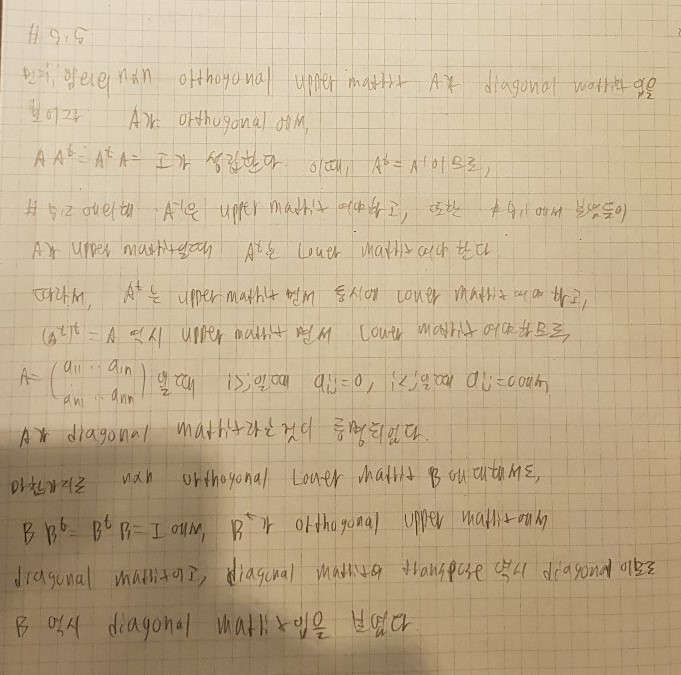 # 5.5
먼저, 임의의 nxn orthogonal upper matrix A가 diagonal matrix 임을
보이자 A가 orthogonal 에서,
A Aᵗ = Aᵗ A = I가 성립한다. 이때, Aᵗ = A⁻¹ 이므로,
# 5.2 에 의해 A⁻¹은 upper matrix 여야 하고, 또한 # 5.1 에서
A가 upper matrix일때 Aᵗ는 Lower matrix 여야 한다
따라서, Aᵗ는 upper matrix 면서 동시에 Lower matrix 여야 하고,
(Aᵗ)ᵗ = A 역시 upper matrix 면서 Lower matrix 여야하므로,
A = (a₁₁ ·· a₁ₙ aₙ₁ ·· aₙₙ) 일 때 i<j일때 aᵢⱼ=0, i>j일 때 aᵢⱼ=0에서
A가 diagonal matrix라는 것이 증명되었다.
마찬가지로 nxn orthogonal Lower matrix B에 대해서도,
B Bᵗ = Bᵗ B = I 에서, Bᵗ가 orthogonal upper matrix에서
diagonal matrix이고, diagonal matrix의 transpose는 역시 diagonal 이므로
B 역시 diagonal matrix임을 보였다.